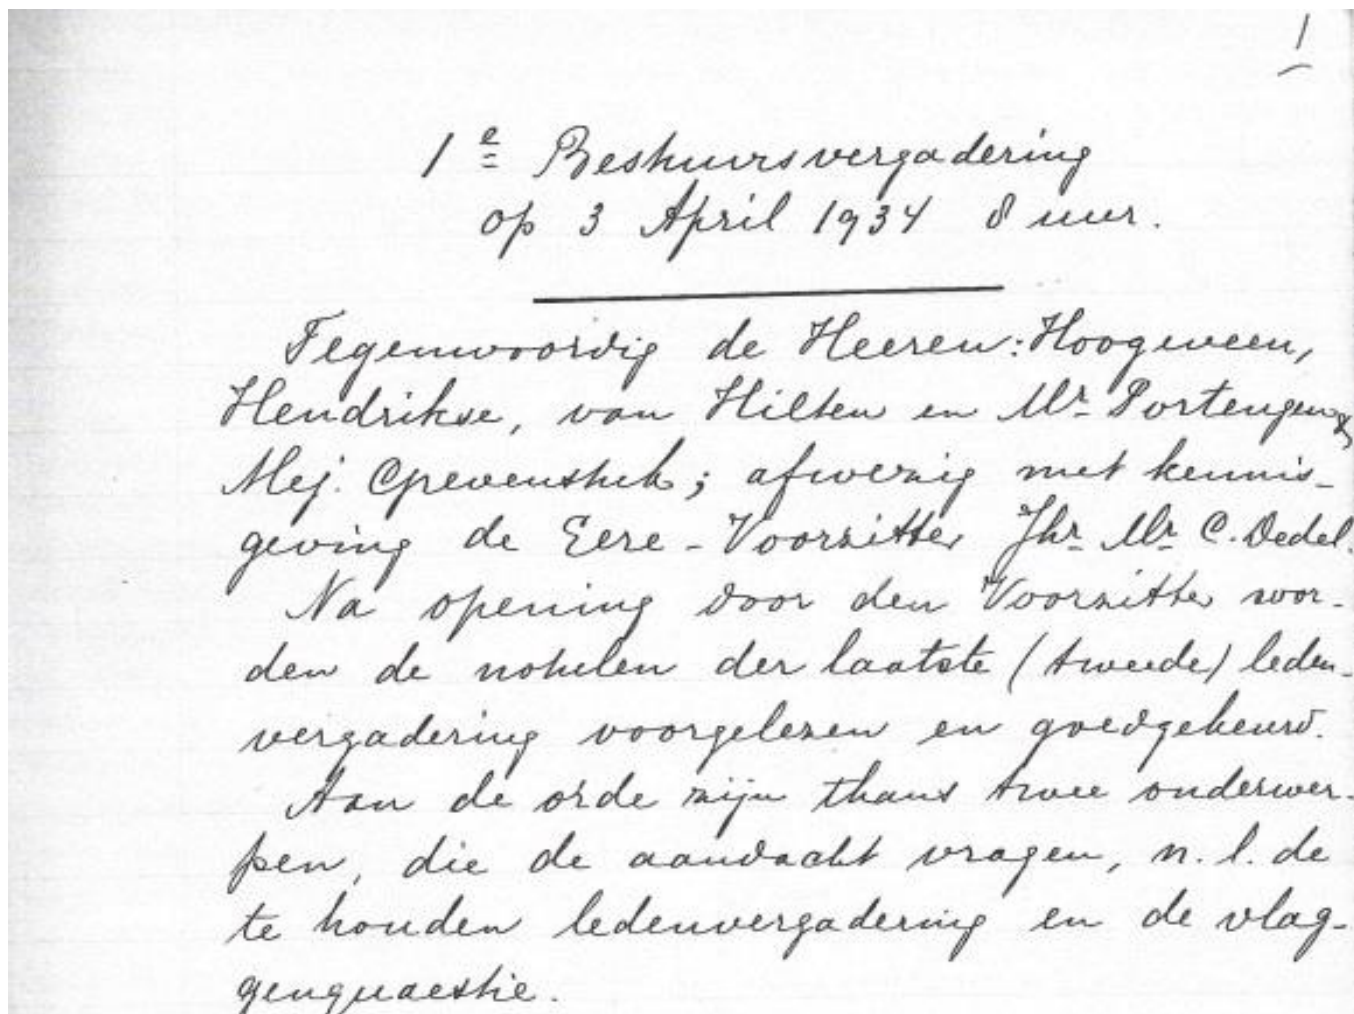 1
1e Bestuursvergadering
op 3 April 1934 8 uur.
Tegenwoordig de Heeren: Hoogeveen,
Hendrikse, van Hilten en Mr. Portengen &
Mej. Grevenstuk; afwezig met kennis-
geving de Eere-Voorzitter Jhr. Mr. C. Dedel.
Na opening door den Voorzitter wor-
den de notulen der laatste (tweede) leden-
vergadering voorgelezen en goedgekeurd.
Aan de orde zijn thans twee onderwer-
pen, die de aandacht vragen, n.l. de
te houden ledenvergadering en de vlag-
genquaestie.